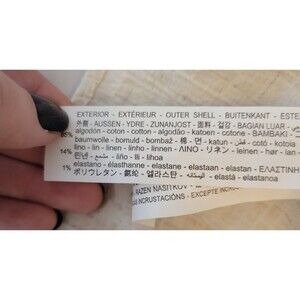 EXTERIOR - EXTÉRIEUR - OUTER SHELL - BUITENKANT - ESTE
- AUSSEN - YDRE - ZUNANJOST - 面料 - 겉감 - BAGIAN LUAR -
85% algodón - coton - cotton - algodão - katoen - cotone - ΒΑΜΒΑΚΙ
baumwolle - bomuld - bombaž - 棉 - 면 - katun - قطن - cotó - kotoia
14% lino - lin - linen - linho - linnen - ΛΙΝΟ - リネン - leinen - hør - lan
린넨 - - liño - lli - lihoa
1% elastano - élasthanne - elastane - elastaan - elastan - ΕΛΑΣΤΙΝΗ
ポリウレタン - 氨纶 - 엘라스탄 - - elastà - elastanoa
RAZEN NAŠITKOV
INCRUSTACIONS - EXCEPTE